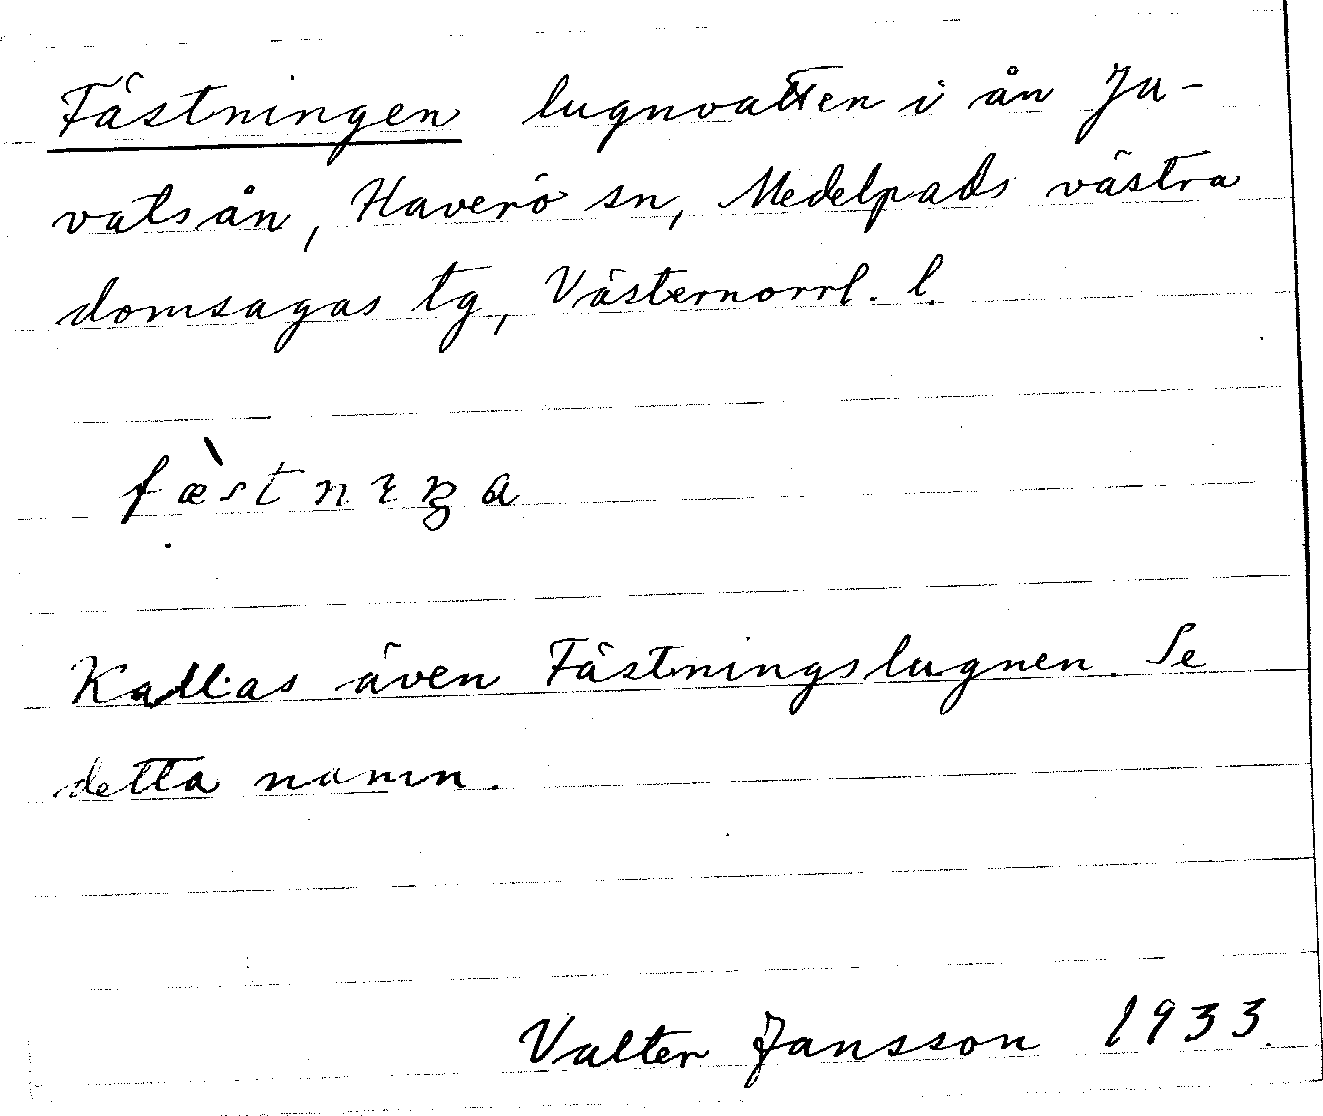 Fästningen lugnvatten i ån Ju-
vatsån, Haverö sn, Medelpads västra
domsagas tg, Västernorrl. l.
fæ̀stnıŋa
Kallas även Fästningslugnen. Se
detta namn.
Valter Jansson 1933.